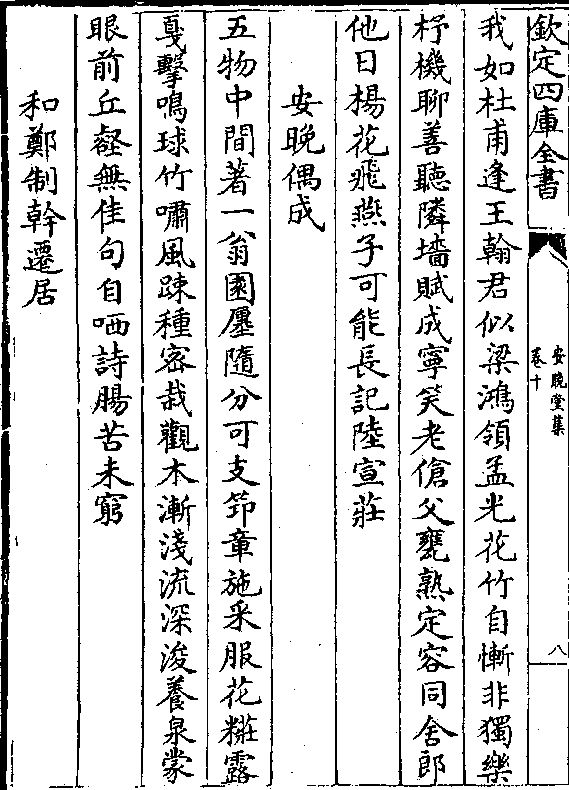 欽定四庫全書
安晚堂集
卷十
八
我如杜甫逢王翰君似梁鴻領孟光花竹自慚非獨樂
杼機聊善聽隣墻賦成寧笑老傖父甕熟定容同舍郎
他日楊花飛燕子可能長記陸宣莊
安晚偶成
五物中間著一翁園廛隨分可支笻章施采服花糚露
戛擊鳴球竹嘯風踈種宻栽觀木漸淺流深浚養泉蒙
眼前丘壑無佳句自哂詩腸苦未窮
和鄭制幹遷居